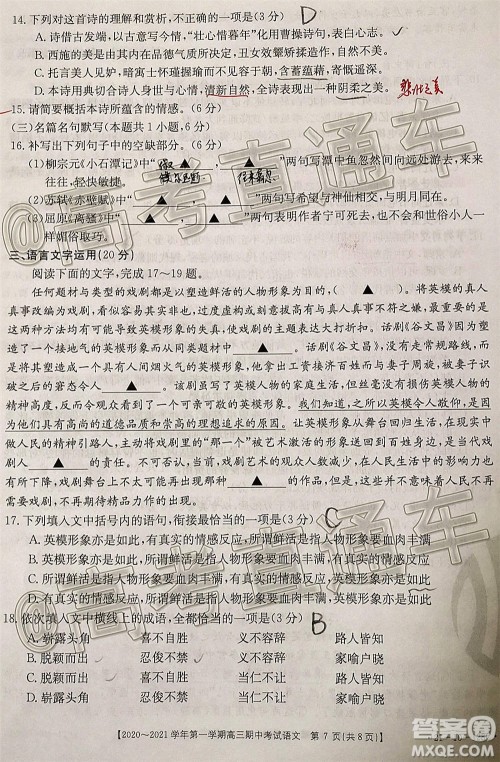 14. 下列对这首诗的理解和赏析,不正确的一项是(3分) D
A. 诗借古发端,以古言今,“壮心惜暮年”化用曹操诗句,表白心志。
B. 西施的美是内在品德气质决定的,丑女效颦矫揉造作,自然不美。
C. 托言美人见妒,暗寓士怀瑾握瑜而为世不容,含蓄蕴藉,寄慨遥深。
D. 大诗人咏古代美人身世与心情,清新自然,全诗表现出一种阴柔之美。
15. 请简要概括本诗所蕴含的情感。(6分)
(三)名篇名句默写(本题共1小题,6分)
16. 补写出下列句子中的空缺部分。(6分)
(1)柳宗元《小石潭记》中“▲,▲”两句写潭中鱼儿忽然间向远处游去,来来
往往,轻快敏捷。
(2)苏轼《赤壁赋》中“▲,▲”两句写希望与神仙相交,与明月同在。
(3)屈原《离骚》中“▲,▲”两句写作者宁可死去,也不会和世俗小人一
样媚俗取巧。
三、语言文字运用(20分)
阅读下面的文字,完成17~19题。
任何题材与类型的戏剧都以塑造鲜活的人物形象为目的。英模戏剧的创作多是将真人
真事改编为戏剧,舞台形象要有真实感。过度虚构或者刻意拔高有损人物的真实性,最重要的
是这两种方法都有可能导致英模形象不被观众认可。( )。话剧《谷文昌》因塑造
了一个接地气的英模形象而从同类题材中▲。话剧《谷文昌》没有走常规路线,而
是塑造了一个具有人间烟火气的英模形象,他拿出工资接济百姓而导致家庭拮据,被妻子识
破之后的窘态令人▲。该剧虽写了英雄人物的家庭生活,但英模形象的高度并没有
因此降低,反而使观众看到了一个可亲可敬的英模形象。我们知道,之所以英模令人敬仰,是因
为他们具有高尚的道德品质和崇高的理想追求的原因。让英模形象从舞台回归到生活中,在
做人民的精神引路人,主动将戏剧里的“那一个”被刻画成百姓身边的这一位,是当代戏剧
人▲的责任。可当前,戏剧艺术的观众人数在日益减少,这些并不意味着人民不再
需要戏剧艺术,不再期待精神作品出现。
17. 下列填入文中括号内的语句,衔接最恰当的一项是(3分) C
A. 英模形象亦是如此,有真实的情感反应,所谓鲜活即是人物形象要血肉丰满
B. 英模形象亦是如此,所谓鲜活即是人物形象要血肉丰满,有真实的情感反应
C. 所谓鲜活即是人物形象要血肉丰满,有真实的情感反应,英模形象亦是如此
D. 所谓鲜活即是人物形象要有真实的情感反应,血肉丰满,英模形象亦是如此
18. 依次填入文中横线上的成语,全都恰当的一项是(3分) B
A. 崭露头角 喜不自胜 义不容辞 路人皆知
B. 脱颖而出 忍俊不禁 义不容辞 家喻户晓
C. 脱颖而出 忍俊不禁 当仁不让 路人皆知
D. 崭露头角 喜不自胜 当仁不让 家喻户晓
【2020～2021学年第一学期高三期中考试语文 第7页(共8页)】
高考直通车
高考直通车
答案圈
MXQE.COM